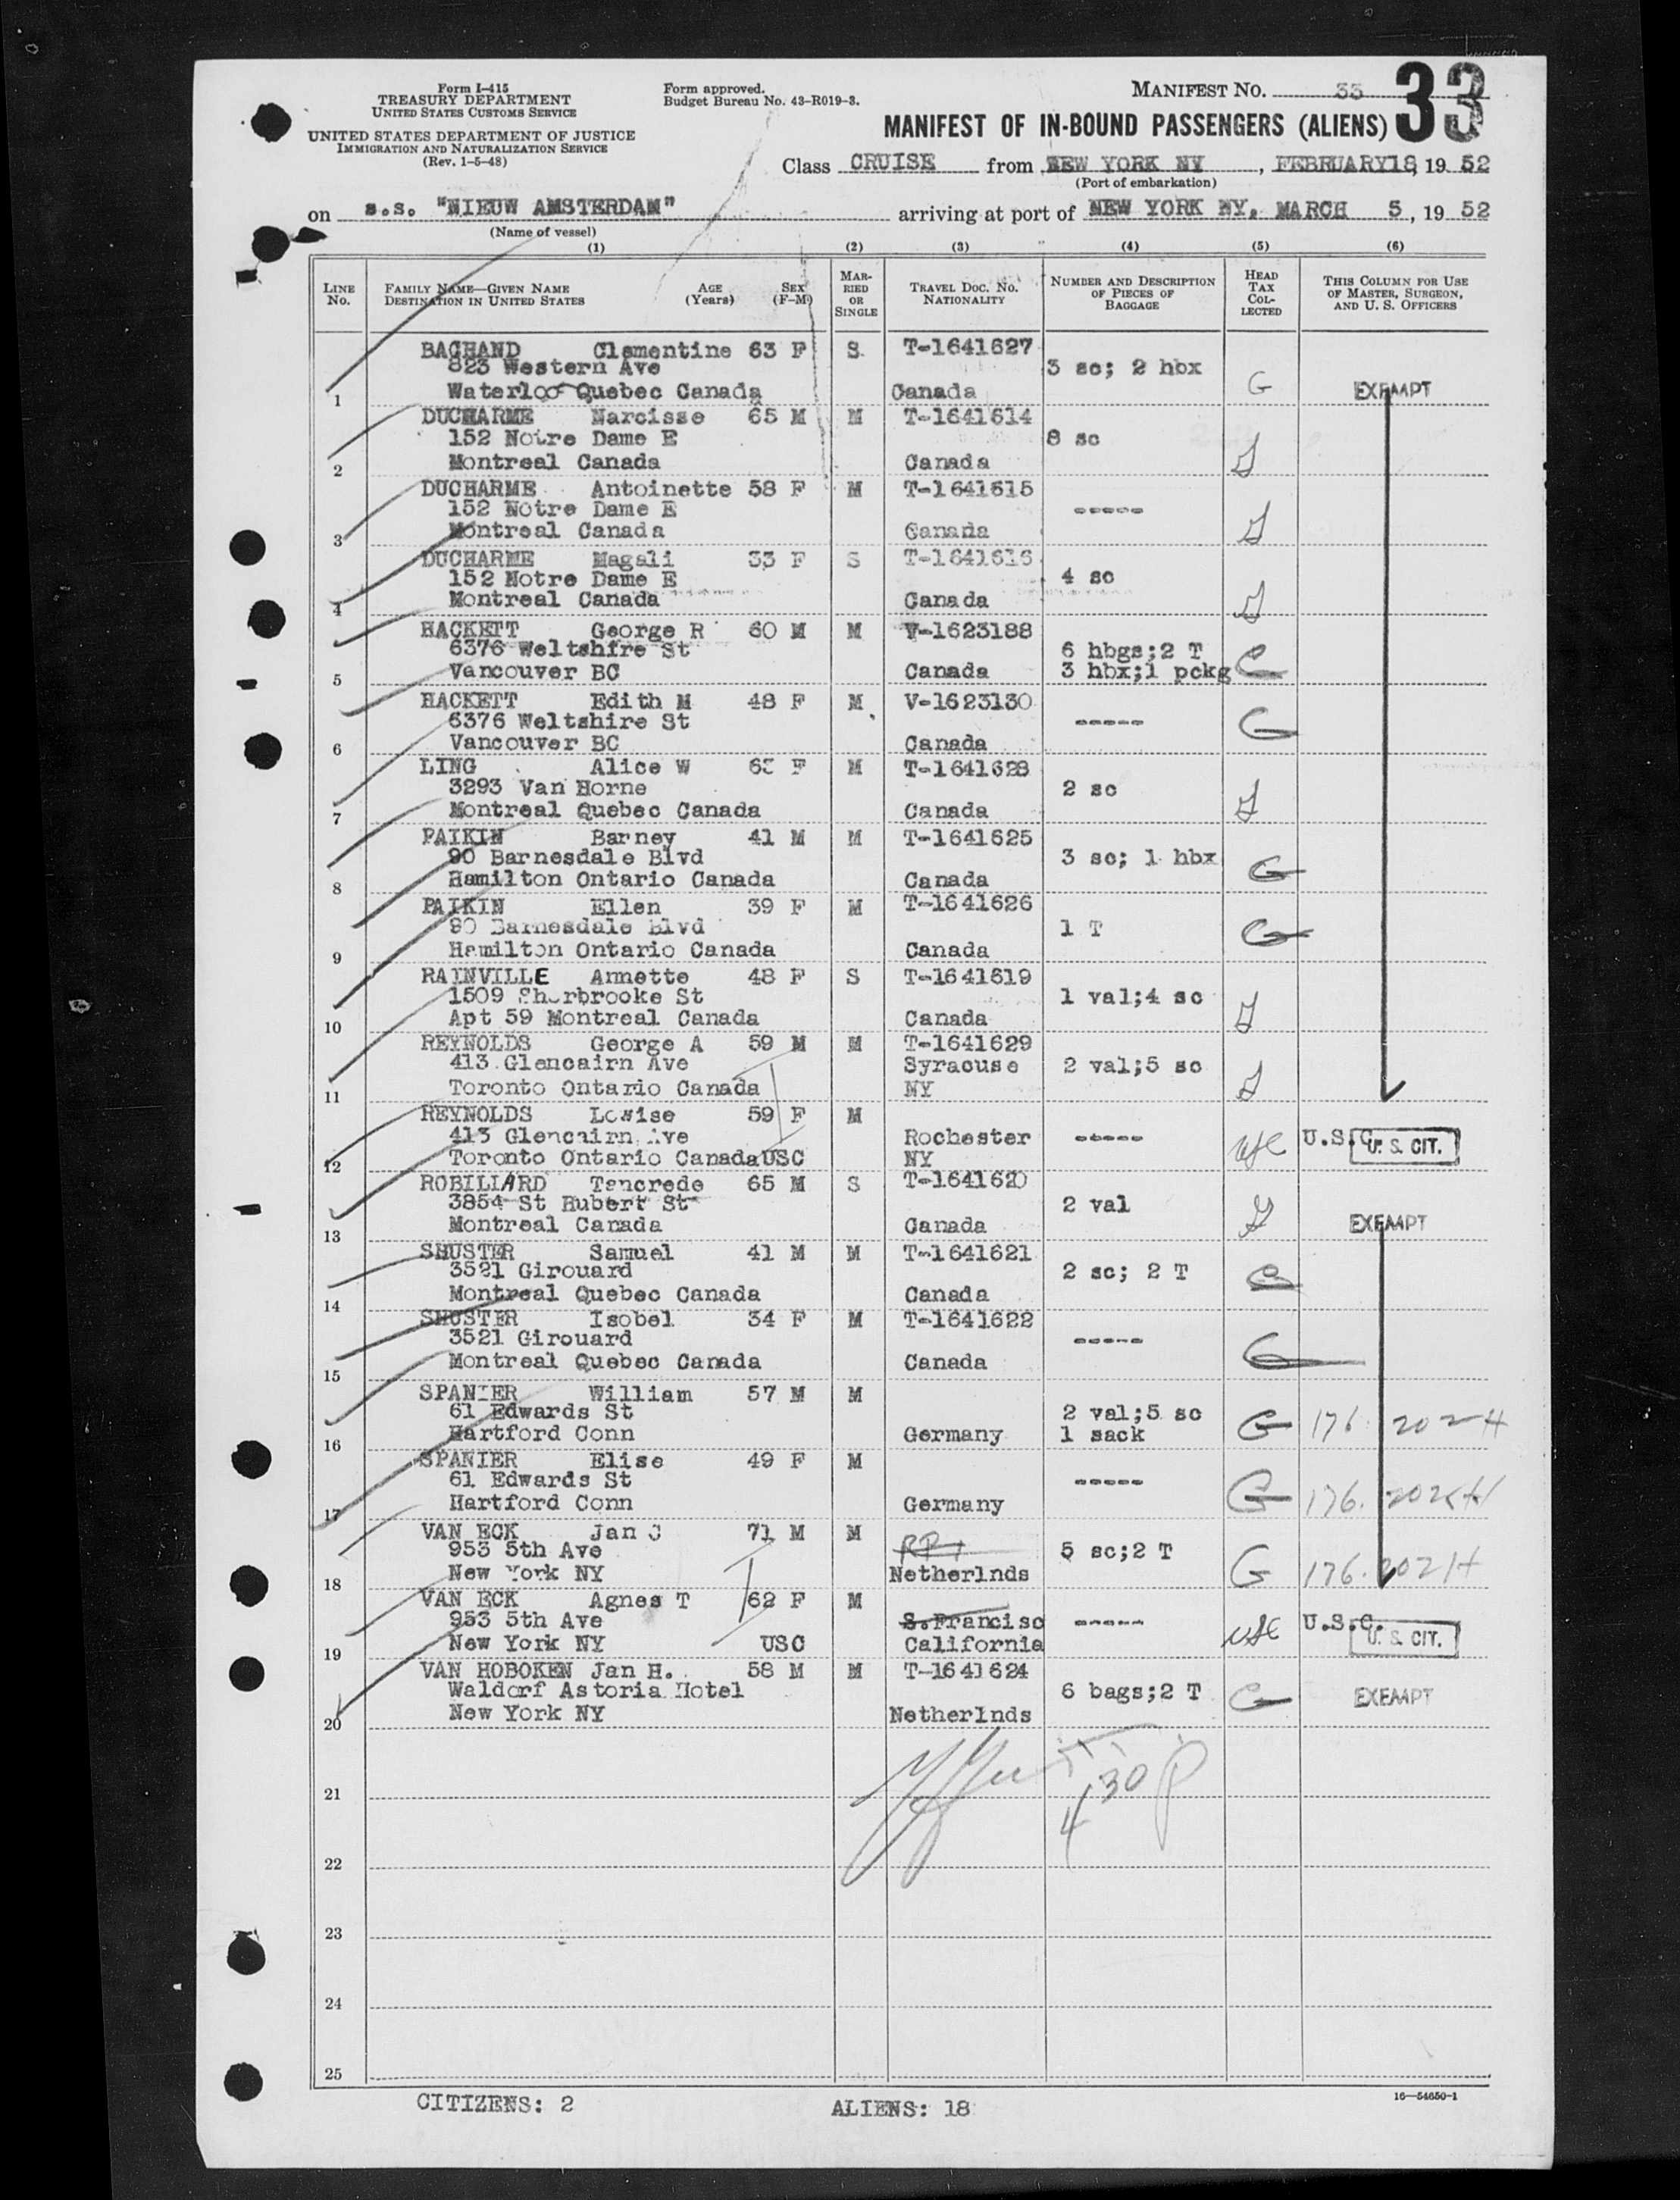 Form I-415
TREASURY DEPARTMENT
UNITED STATES CUSTOMS SERVICE
UNITED STATES DEPARTMENT OF JUSTICE
IMMIGRATION AND NATURALIZATION SERVICE
(Rev. 1-5-48)
Form approved.
Budget Bureau No. 43-R019-3.
MANIFEST NO. 33
33
MANIFEST OF IN-BOUND PASSENGERS (ALIENS)
Class CRUISE from NEW YORK NY, FEBRUARY18, 1952
(Port of embarkation)
on s.s. "NIEUW AMSTERDAM" arriving at port of NEW YORK NY, MARCH 5, 1952
(Name of vessel)
(1) (2) (3) (4) (5) (6)
LINE No.
FAMILY NAME—GIVEN NAME DESTINATION IN UNITED STATES
AGE (Years)
SEX (F-M)
MARRIED OR SINGLE
TRAVEL DOC. NO. NATIONALITY
NUMBER AND DESCRIPTION OF PIECES OF BAGGAGE
HEAD TAX COLLECTED
THIS COLUMN FOR USE OF MASTER, SURGEON, AND U. S. OFFICERS
BACHAND Clementine 63 F S T-1641627
823 Western Ave 3 sc; 2 hbx
1 Waterloo Quebec Canada Canada G EXEMPT
DUCHARME Narcisse 65 M M T-1641614
152 Notre Dame E 8 sc
2 Montreal Canada Canada
DUCHARME Antoinette 58 F M T-1641615
152 Notre Dame E -----
3 Montreal Canada Canada
DUCHARME Magali 33 F S T-1641616
152 Notre Dame E 4 sc
4 Montreal Canada Canada
HACKETT George R 60 M M V-1623188
6376 Weltshire St 6 hbgs;2 T
5 Vancouver BC Canada 3 hbx;1 pckg
HACKETT Edith M 48 F M V-1623130
6376 Weltshire St -----
6 Vancouver BC Canada G
LING Alice W F M T-1641628
3293 Van Horne 2 sc
7 Montreal Quebec Canada Canada
PAIKIN Barney 41 M M T-1641625
90 Barnesdale Blvd 3 sc; 1 hbx
8 Hamilton Ontario Canada Canada G
PAIKIN Ellen 39 F M T-1641626
90 Barnesdale Blvd 1 T
9 Hamilton Ontario Canada Canada G
RAINVILLE Annette 48 F S T-1641619
1509 Sherbrooke St 1 val;4 sc
10 Apt 59 Montreal Canada Canada
REYNOLDS George A 59 M M T-1641629
413 Glencairn Ave Syracuse 2 val;5 sc
11 Toronto Ontario Canada NY
REYNOLDS Louise 59 F M
413 Glencairn Ave Rochester ----- U.S.C. U. S. CIT.
12 Toronto Ontario Canada USC NY USC
ROBILLARD Tancrede 65 M S T-1641620
3854 St Hubert St 2 val
13 Montreal Canada Canada EXEMPT
SHUSTER Samuel 41 M M T-1641621
3521 Girouard 2 sc; 2 T
14 Montreal Quebec Canada Canada
SHUSTER Isobel 34 F M T-1641622
3521 Girouard -----
15 Montreal Quebec Canada Canada G
SPANIER William 57 M M
61 Edwards St 2 val;5 sc
16 Hartford Conn Germany 1 sack G 176. 202H
SPANIER Elise 49 F M
61 Edwards St -----
17 Hartford Conn Germany G 176. 202H
VAN ECK Jan C 71 M M
953 5th Ave 5 sc;2 T
18 New York NY Netherlnds G 176. 202H
VAN ECK Agnes T 62 F M
953 5th Ave S.Francisc ----- U.S.C. U. S. CIT.
19 New York NY USC California USC
VAN HOBOKEN Jan H. 58 M M T-1641624
Waldorf Astoria Hotel 6 bags;2 T G EXEMPT
20 New York NY Netherlnds
21
430 P
22
23
24
25
CITIZENS: 2 ALIENS: 18
16—54650-1